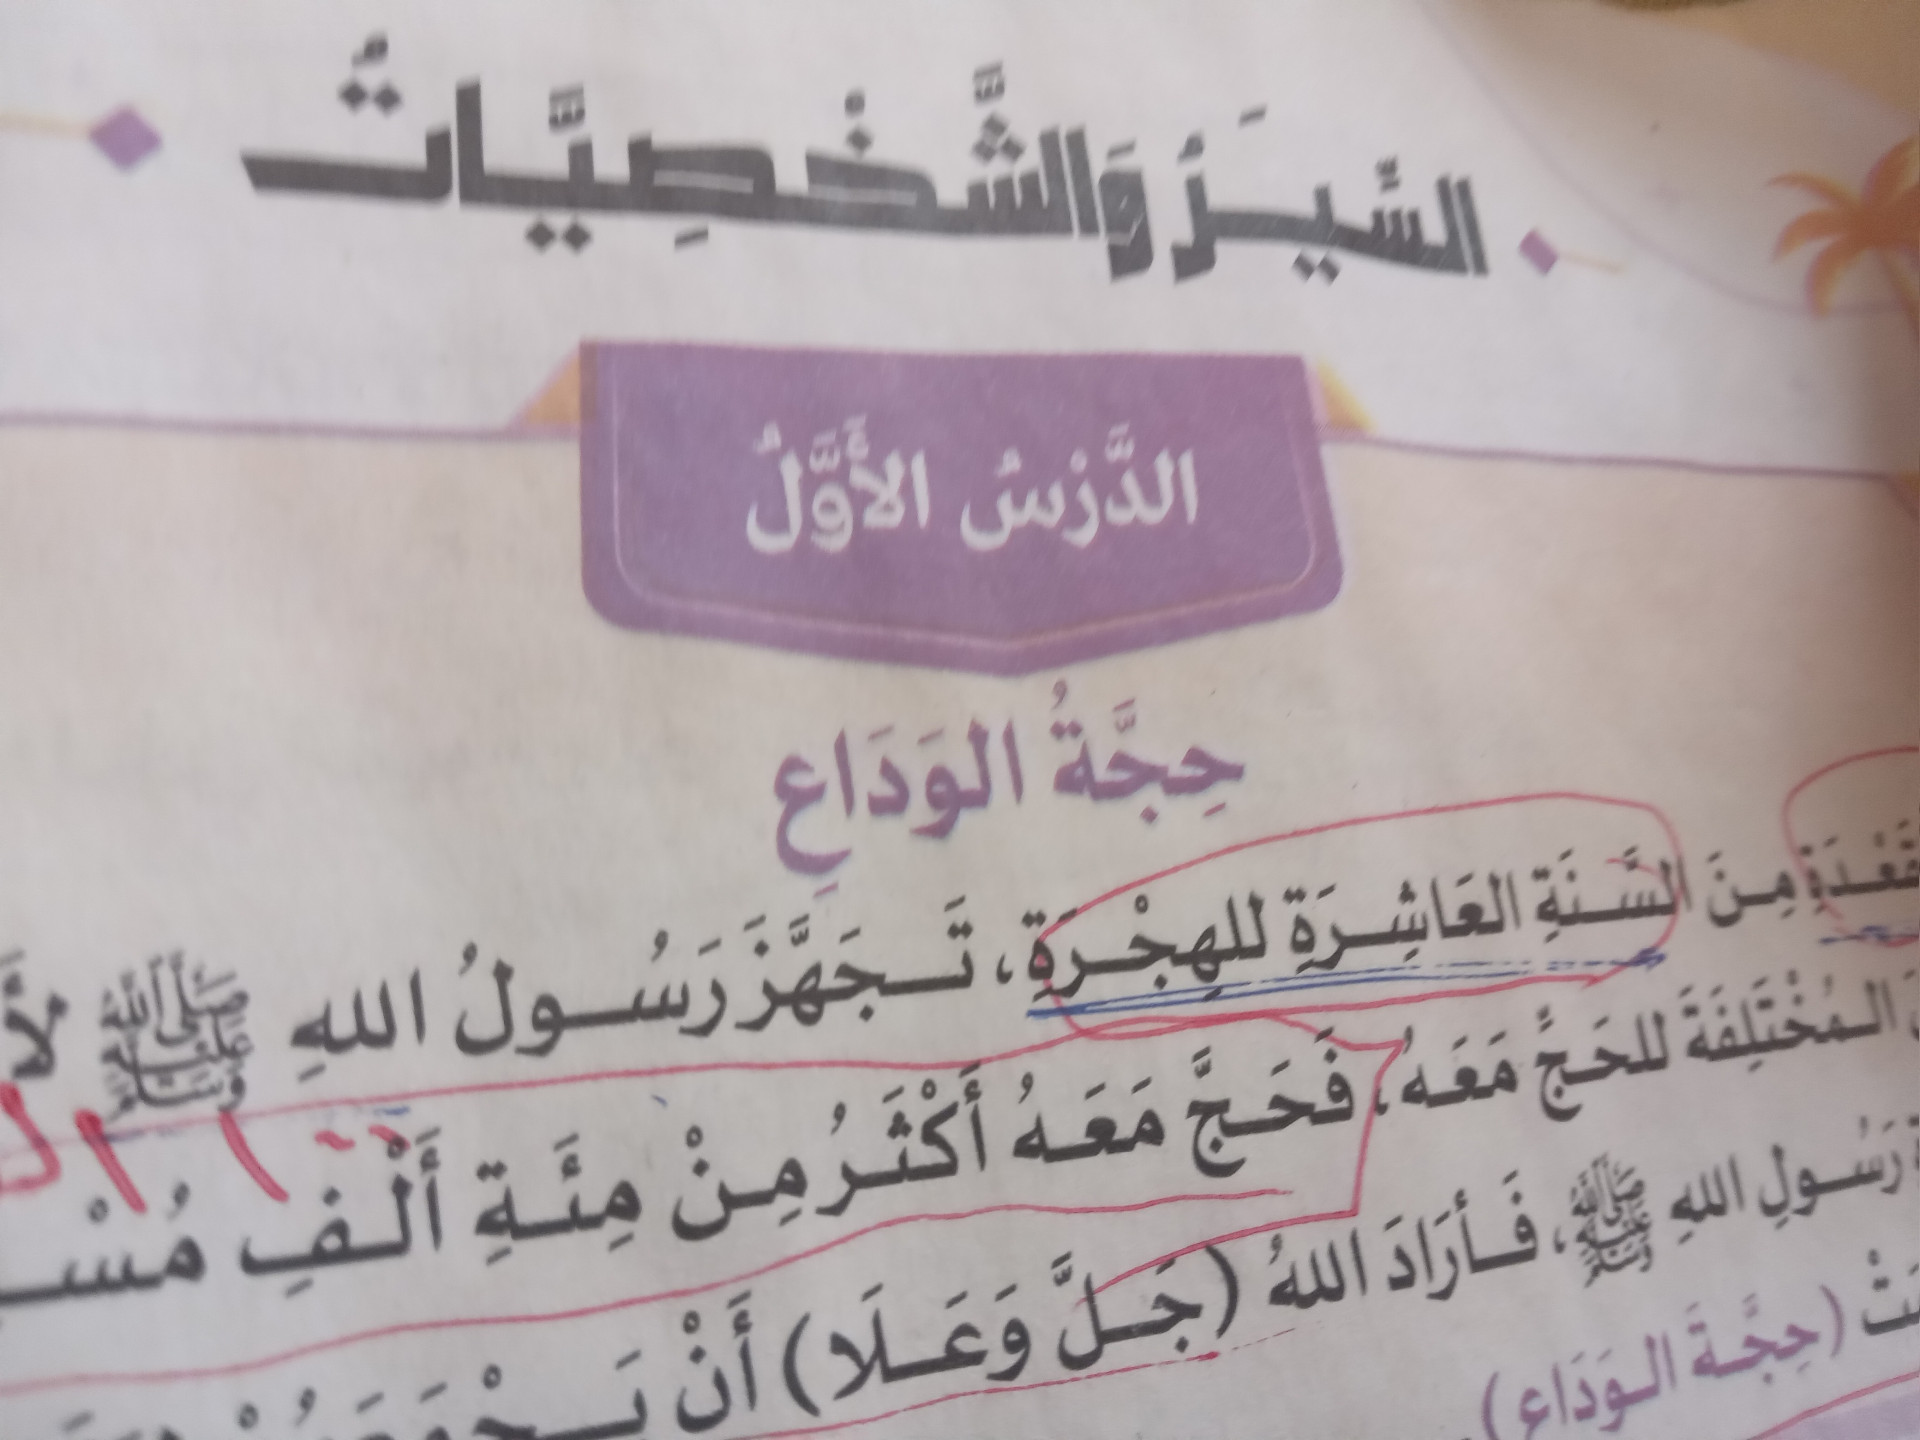 السِّيَرُ وَالشَّخْصِيَّاتُ
الدَّرْسُ الأَوَّلُ
حِجَّةُ الوَدَاعِ
مِنَ السَّنَةِ العَاشِرَةِ للهِجْرَةِ، تَجَهَّزَ رَسُولُ اللهِ ﷺ
المُخْتَلِفَةَ للحَجِّ مَعَهُ، فَحَجَّ مَعَهُ أَكْثَرُ مِنْ مِئَةِ أَلْفِ
رَسُولِ اللهِ ﷺ، فَأرَادَ اللهُ (جَلَّ وَعَلَا) أَنْ
(حِجَّةَ الوَدَاعِ)